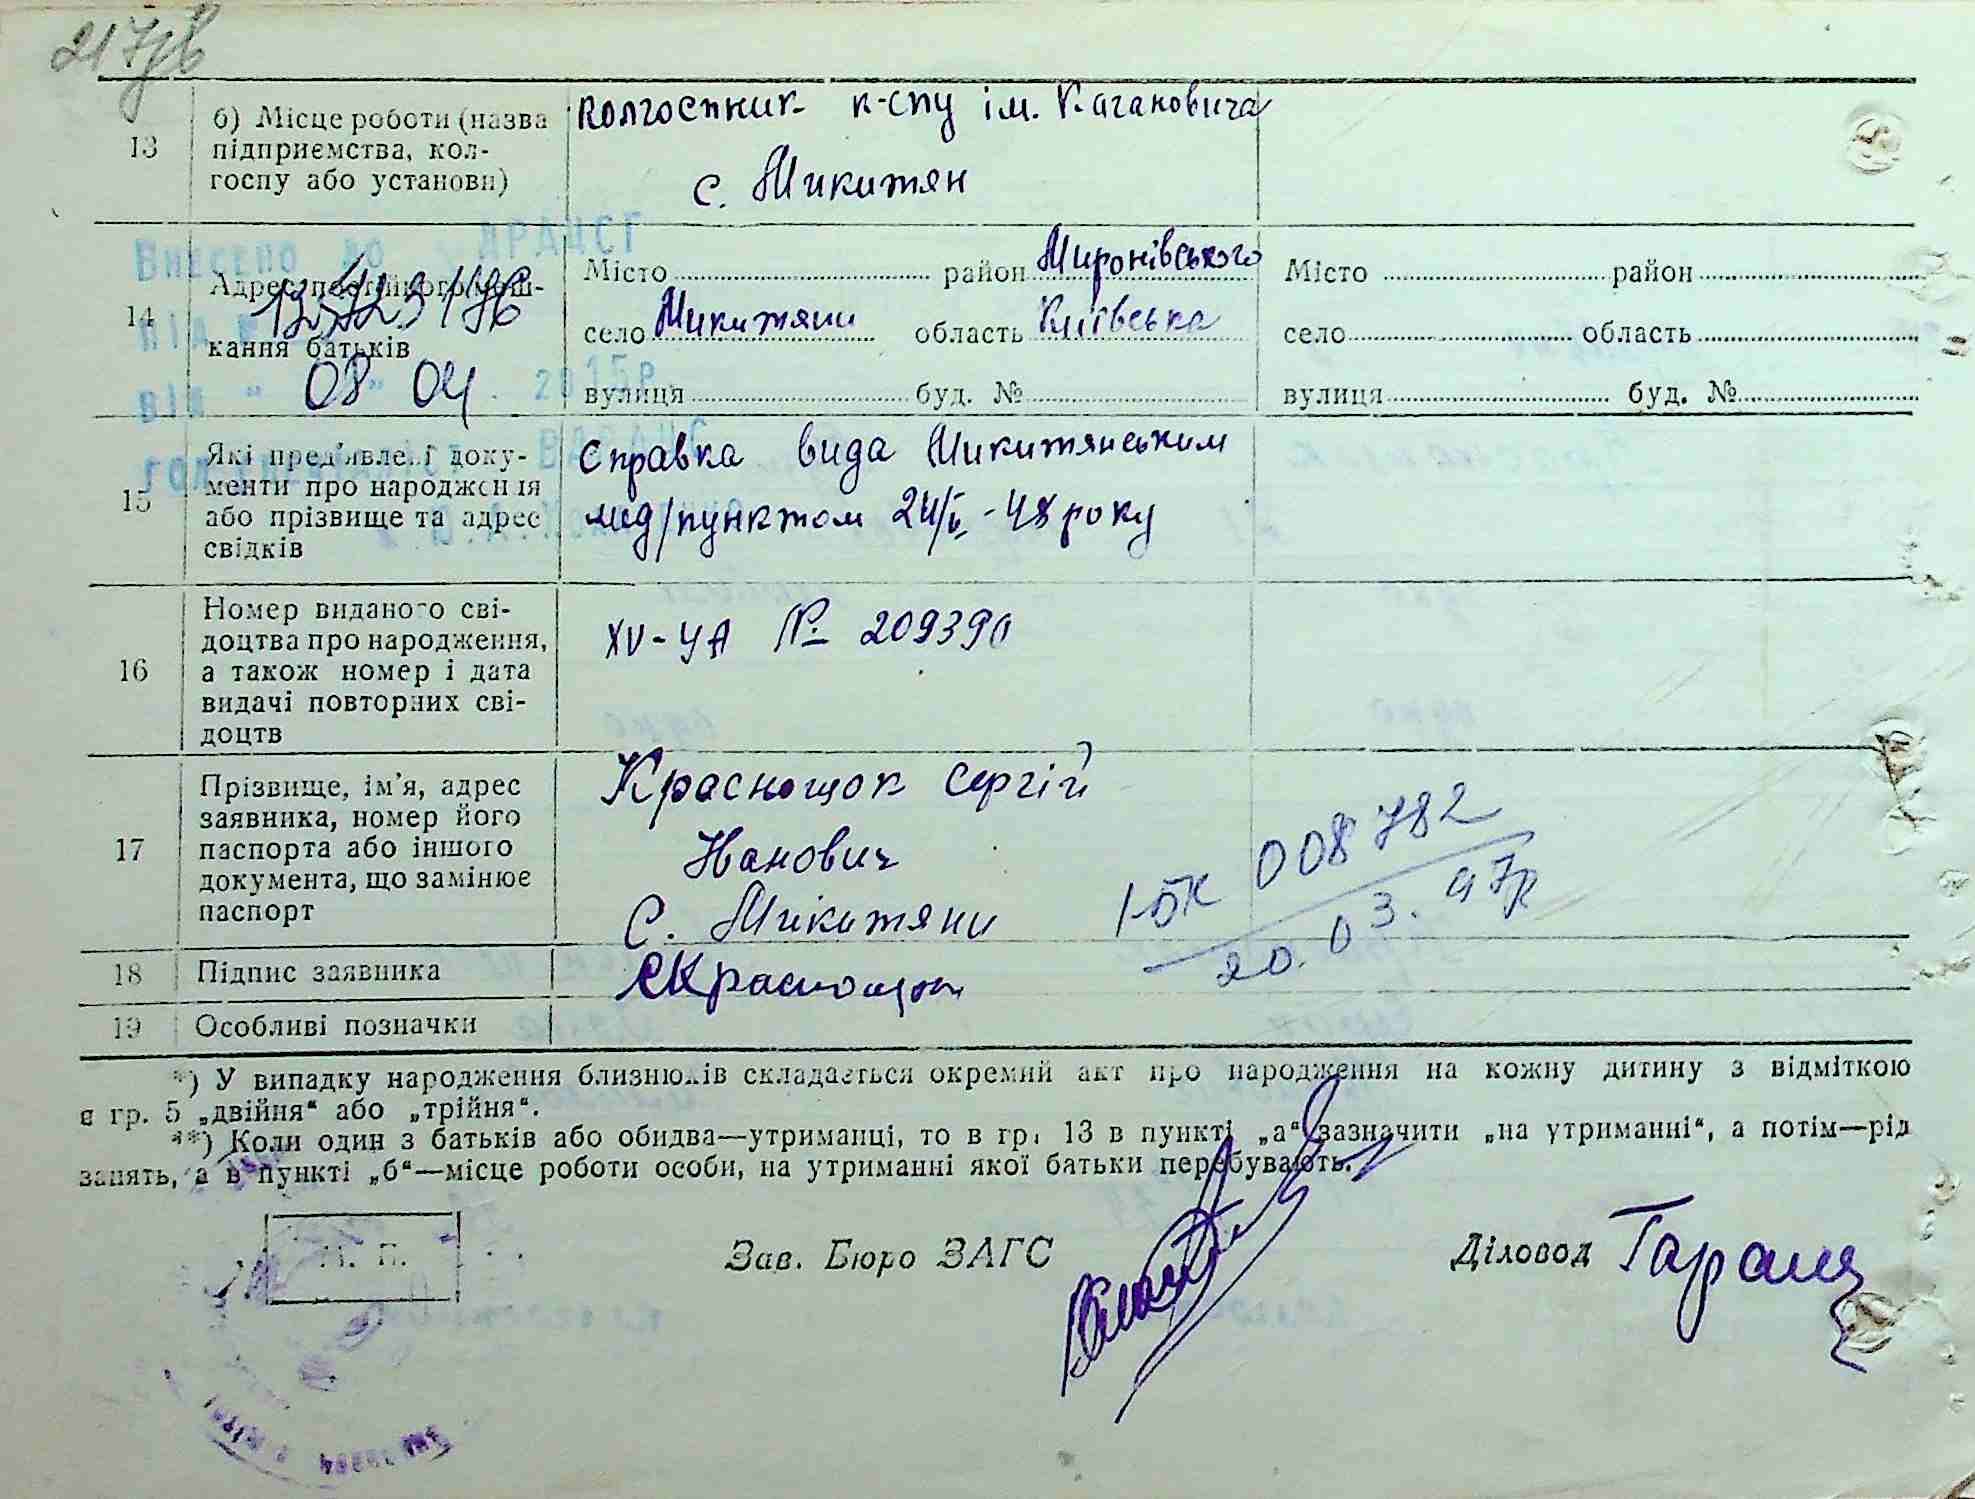 217зв
13
б) Місце роботи (назва
підприємства, кол-
госпу або установи)
колгоспник к-спу ім. Кагановича
с. Микитян
Внесено до ДРАЦСГ
14
Адрес постійного меш-
кання батьків
Місто район Миронівського
село Микитяни область Київська
вулиця буд. №
Місто район
село область
вулиця буд. №
08 04 2015р.
15
Які пред'явлені доку-
менти про народження
або прізвище та адрес
свідків
Справка вида Микитянським
мед/пунктом 24/V-48 року
16
Номер виданого сві-
доцтва про народження,
а також номер і дата
видачі повторних сві-
доцтв
XV-УА № 209390
17
Прізвище, ім'я, адрес
заявника, номер його
паспорта або іншого
документа, що замінює
паспорт
Краснощок Сергій
Іванович
с. Микитяни
І-БК 008782
20.03.97р
18
Підпис заявника
СКраснощок
19
Особливі позначки
*) У випадку народження близнюків складається окремий акт про народження на кожну дитину з відміткою
в гр. 5 „двійня“ або „трійня“.
**) Коли один з батьків або обидва—утриманці, то в гр. 13 в пункті „а“ зазначити „на утриманні“, а потім—рід
занять, а в пункті „б“—місце роботи особи, на утриманні якої батьки перебувають.
М. П.
Зав. Бюро ЗАГС
Діловод